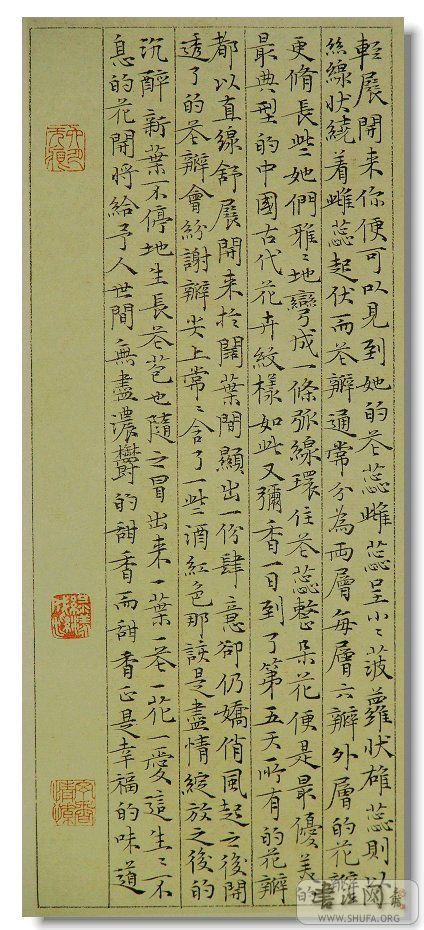 輕展開来你便可以見到她的花蕊雌蕊呈小小菠蘿狀雄蕊則以
絲線狀繞着雌蕊起伏而花瓣通常分為兩層每層六瓣外層的花瓣
更脩長些她們雅雅地彎成一條弧線環住花蕊整朵花便是最優美
最典型的中國古代花卉紋樣如此又彌香一日到了第五天所有的花瓣
都以直線舒展開来於闊葉間顯出一份肆意卻仍嬌俏風起之後開
透了的花瓣會紛謝瓣尖上常常含了一些酒紅色那該是盡情綻放之後的
沉醉新葉不停地生長花苞也隨之冒出来一葉一花一花一愛這生生不
息的花開將給予人世間無盡濃鬱的甜香而甜香正是幸福的味道
書法
WWW.SHUFA.ORG